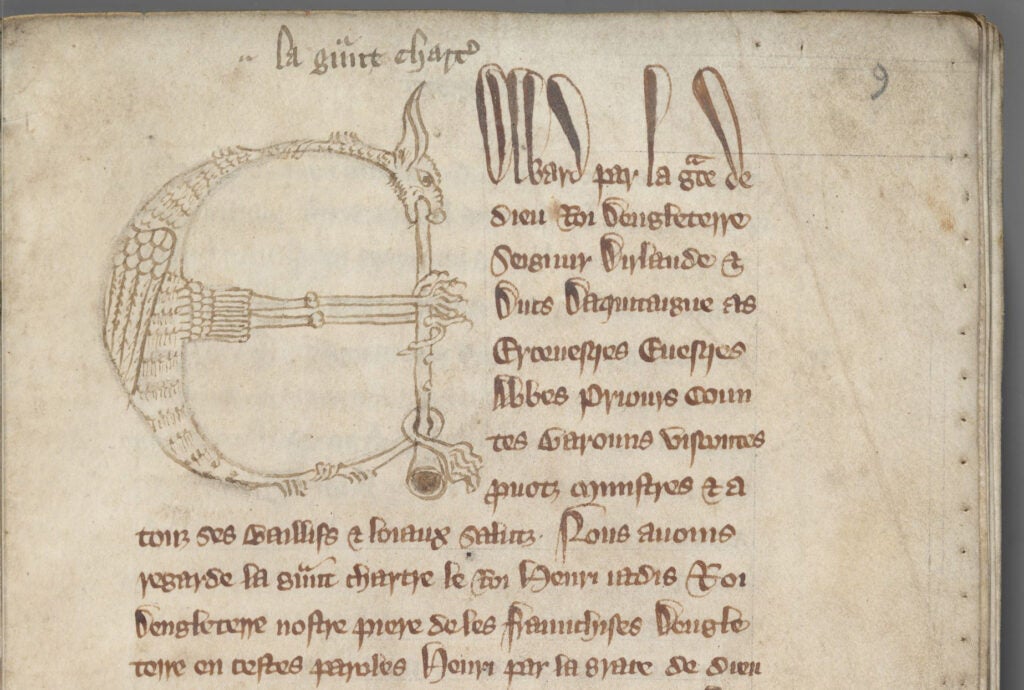 la gñt chart
9
EDward par la gce de
dieu Roi Dengleterre
Seignur Dirlande &
Ducs Daquitaigne as
Ercevesqes Evesqes
Abbes Priours Coun
tes Barouns viscontes
pvotz Ministres & a
touz ses Baillifs & loiaux saluz. Nous avoms
regarde la gñt chartre le Roi Henri iadis Roi
Dengleterre nostre piere de les fraunchises Dengle
terre en cestes paroles Henri par la grace de dieu